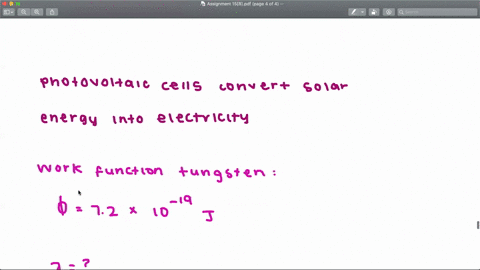 Assignment 10(8).pdf (page 4 of 4)
Search
photovoltaic cells convert solar
energy into electricity
work function tungsten:
ϕ = 7.2 × 10⁻¹⁹ J
λ = ?